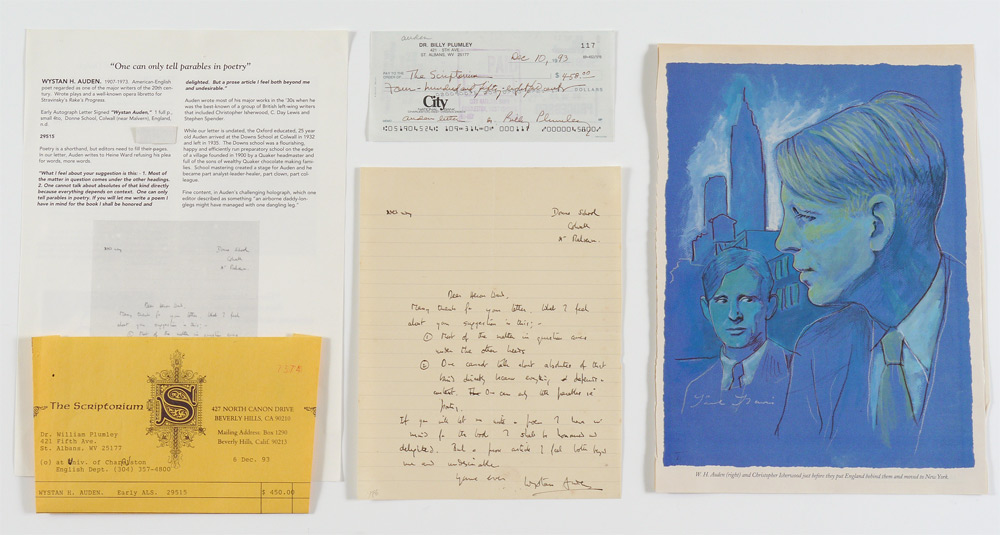 "One can only tell parables in poetry"
WYSTAN H. AUDEN. 1907-1973. American-English
poet regarded as one of the major writers of the 20th cen-
tury. Wrote plays and a well-known opera libretto for
Stravinsky's Rake's Progress.
Early Autograph Letter Signed "Wystan Auden," 1 full p.,
small 4to, Donne School, Colwall (near Malvern), England,
n.d.
29515
Poetry is a shorthand, but editors need to fill their pages.
In our letter, Auden writes to Heinz Ward refusing his plea
for words, more words.
"What I feel about your suggestion is this: - 1. Most of
the matter in question comes under the other headings.
2. One cannot talk about absolutes of that kind directly
because everything depends on context. One can only
tell parables in poetry. If you will let me write a poem I
have in mind for the book I shall be honored and
delighted. But a prose article I feel both beyond me
and undesirable."
Auden wrote most of his major works in the '30s when he
was the best-known of a group of British left-wing writers
that included Christopher Isherwood, C. Day Lewis and
Stephen Spender.
While our letter is undated, the Oxford educated, 25 year
old Auden arrived at the Downs School at Colwall in 1932
and left in 1935. The Downs school was a flourishing,
happy and efficiently run preparatory school on the edge
of a village founded in 1900 by a Quaker headmaster and
full of the sons of wealthy Quaker chocolate making fami-
lies. School mastering created a stage for Auden and he
became part analyst-leader-healer, part clown, part col-
league.
Fine content, in Auden's challenging holograph, which one
editor described as something "an airborne daddy-lon-
glegs might have managed with one dangling leg."
Donne School
Colwall
Nr Malvern
Many thanks for your letter. What I feel
about your suggestion is this; -
① Most of the matter in question comes
1372
The Scriptorium
S
427 NORTH CANON DRIVE
BEVERLY HILLS, CA 90210
Mailing Address: Box 1290
Beverly Hills, Calif. 90213
6 Dec. 93
Dr. William Plumley
421 Fifth Ave.
St. Albans, WV 25177
(o) at Univ. of Charleston
English Dept. (304) 357-4800
WYSTAN H. AUDEN. Early ALS. 29515 $ 450.00
auden
DR. BILLY PLUMLEY
421 - 5TH AVE.
ST. ALBANS, WV 25177
117
Dec 10, 1993
PAY TO THE
ORDER OF The Scriptorium $458.00
Four-hundred and fifty-eight DOLLARS
City
MEMO auden letter Billy Plumley
Donne School
Colwall
Nr Malvern
Many thanks for your letter. What I feel
about your suggestion is this; -
① Most of the matter in question comes
under the other heads
② One cannot talk about absolutes of that
kind directly because everything depends on
context. One can only tell parables in
poetry.
If you will let me write a poem I have in
mind for the book I shall be honoured and
delighted. But a prose article I feel both beyond
me and undesirable.
Yours ever
Wystan Auden
W. H. Auden (right) and Christopher Isherwood just before they put England behind them and moved to New York.